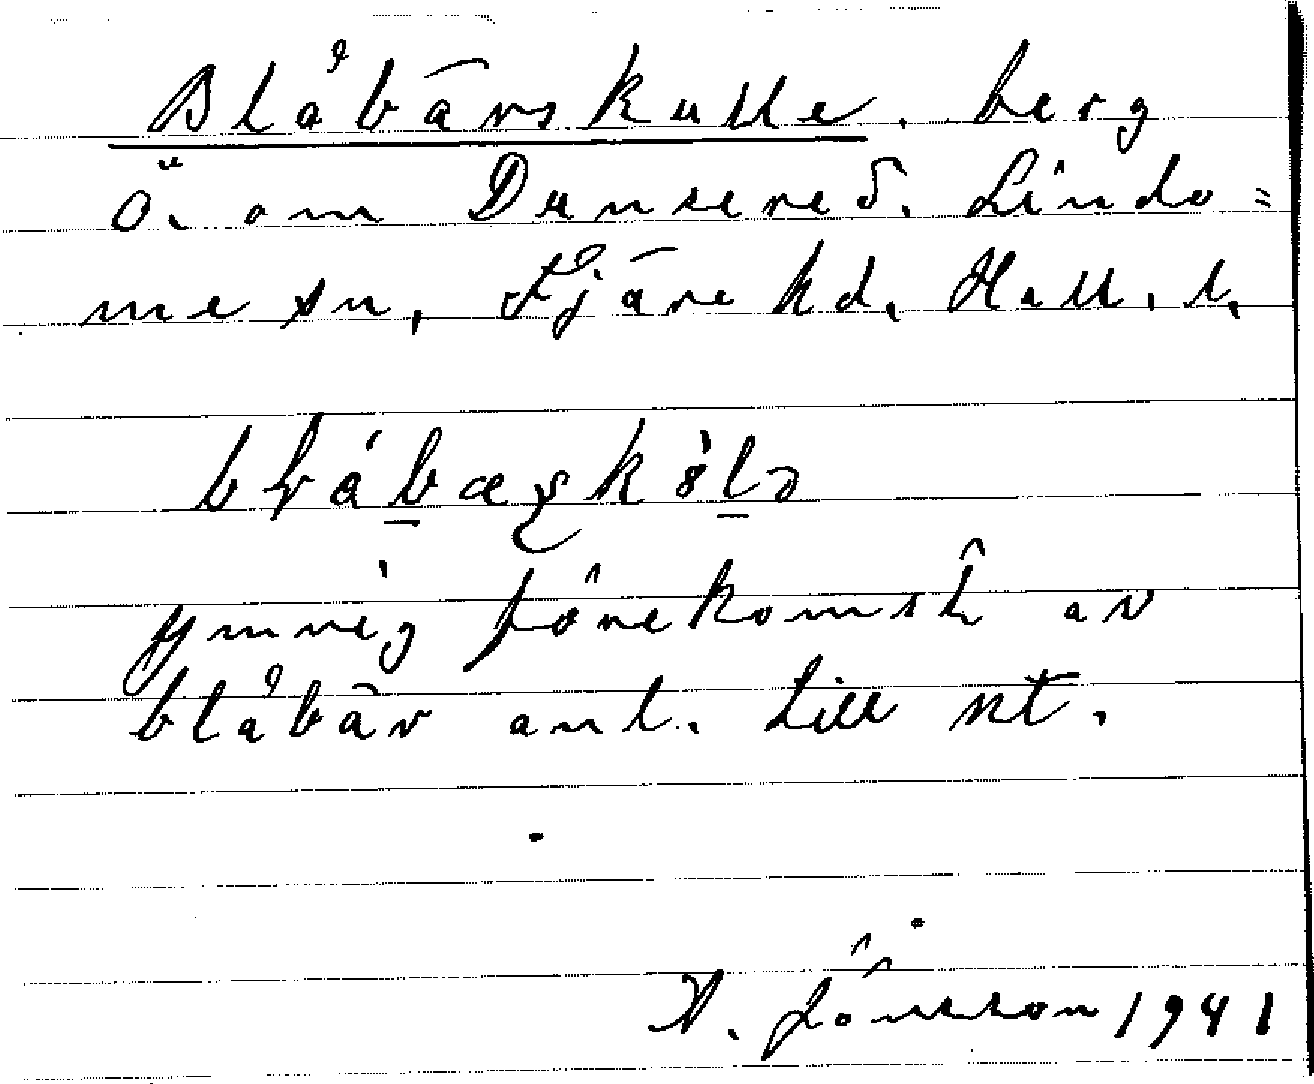 Blåbärskulle. berg
Ö. om Dunsered. Lindo=
me sn, Fjäre hd. Hall. l.
ymnig förekomst av
blåbär anl. till nt.
A. Jönsson 1941